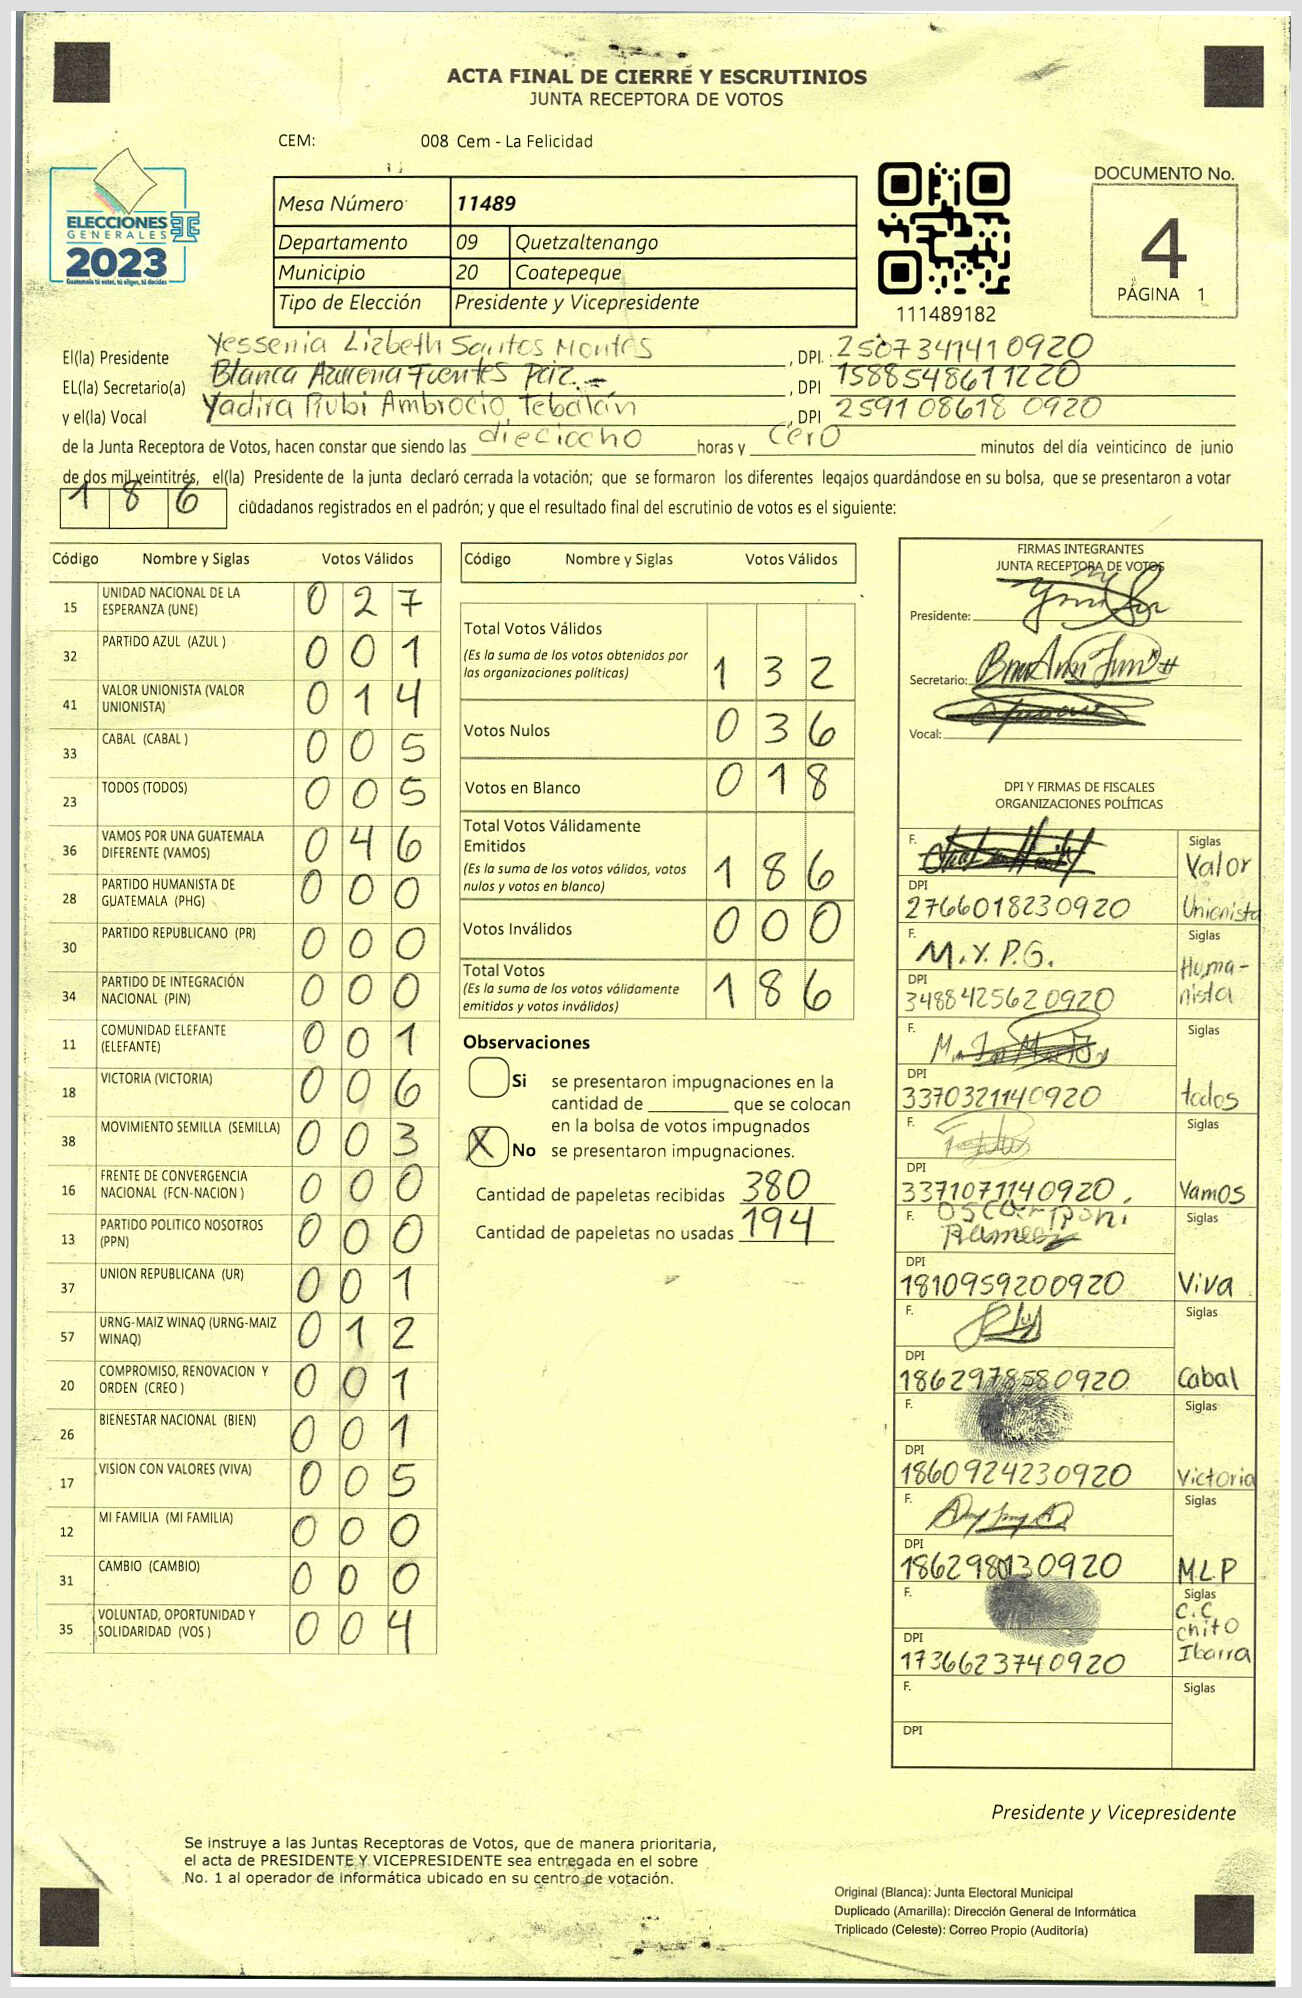 ACTA FINAL DE CIERRE Y ESCRUTINIOS
JUNTA RECEPTORA DE VOTOS
CEM: 008 Cem - La Felicidad
ELECCIONES
GENERALES
2023
Guatemala tú votas, tú eliges, tú decides
Mesa Número 11489
Departamento 09 Quetzaltenango
Municipio 20 Coatepeque
Tipo de Elección Presidente y Vicepresidente
111489182
DOCUMENTO No.
4
PÁGINA 1
El(la) Presidente Yessenia Lizbeth Santos Montes, DPI. 2507341410920
EL(la) Secretario(a) Blanca Azucena Fuentes Paiz, DPI 1588548611220
y el(la) Vocal Yadira Rubi Ambrocio Tebalán, DPI 2591086180920
de la Junta Receptora de Votos, hacen constar que siendo las dieciocho horas y cero minutos del día veinticinco de junio
de dos mil veintitrés, el(la) Presidente de la junta declaró cerrada la votación; que se formaron los diferentes legajos guardándose en su bolsa, que se presentaron a votar
186 ciudadanos registrados en el padrón; y que el resultado final del escrutinio de votos es el siguiente:
Código Nombre y Siglas Votos Válidos
15 UNIDAD NACIONAL DE LA ESPERANZA (UNE) 027
32 PARTIDO AZUL (AZUL ) 001
41 VALOR UNIONISTA (VALOR UNIONISTA) 014
33 CABAL (CABAL ) 005
23 TODOS (TODOS) 005
36 VAMOS POR UNA GUATEMALA DIFERENTE (VAMOS) 046
28 PARTIDO HUMANISTA DE GUATEMALA (PHG) 000
30 PARTIDO REPUBLICANO (PR) 000
34 PARTIDO DE INTEGRACIÓN NACIONAL (PIN) 000
11 COMUNIDAD ELEFANTE (ELEFANTE) 001
18 VICTORIA (VICTORIA) 006
38 MOVIMIENTO SEMILLA (SEMILLA) 003
16 FRENTE DE CONVERGENCIA NACIONAL (FCN-NACION ) 000
13 PARTIDO POLITICO NOSOTROS (PPN) 000
37 UNION REPUBLICANA (UR) 001
57 URNG-MAIZ WINAQ (URNG-MAIZ WINAQ) 012
20 COMPROMISO, RENOVACION Y ORDEN (CREO ) 001
26 BIENESTAR NACIONAL (BIEN) 001
17 VISION CON VALORES (VIVA) 005
12 MI FAMILIA (MI FAMILIA) 000
31 CAMBIO (CAMBIO) 000
35 VOLUNTAD, OPORTUNIDAD Y SOLIDARIDAD (VOS ) 004
Código Nombre y Siglas Votos Válidos
Total Votos Válidos
(Es la suma de los votos obtenidos por
las organizaciones políticas) 132
Votos Nulos 036
Votos en Blanco 018
Total Votos Válidamente
Emitidos
(Es la suma de los votos válidos, votos
nulos y votos en blanco) 186
Votos Inválidos 000
Total Votos
(Es la suma de los votos válidamente
emitidos y votos inválidos) 186
Observaciones
Si se presentaron impugnaciones en la
cantidad de ________ que se colocan
en la bolsa de votos impugnados
X No se presentaron impugnaciones.
Cantidad de papeletas recibidas 380
Cantidad de papeletas no usadas 194
FIRMAS INTEGRANTES
JUNTA RECEPTORA DE VOTOS
Presidente:
Secretario:
Vocal:
DPI Y FIRMAS DE FISCALES
ORGANIZACIONES POLÍTICAS
F. Siglas Valor Unionista
DPI 2766018230920
F. M.Y.P.G. Siglas Humanista
DPI 3488425620920
F. Siglas todos
DPI 3370321140920
F. Siglas Vamos
DPI 3371071140920
F. Siglas Viva
DPI 1810959200920
F. Siglas Cabal
DPI 1862978580920
F. Siglas Victoria
DPI 1860924230920
F. Siglas M.L.P
DPI
F. Siglas C.C chito Ibarra
DPI 1736623740920
F. Siglas
DPI
Presidente y Vicepresidente
Se instruye a las Juntas Receptoras de Votos, que de manera prioritaria,
el acta de PRESIDENTE Y VICEPRESIDENTE sea entregada en el sobre
No. 1 al operador de informática ubicado en su centro de votación.
Original (Blanca): Junta Electoral Municipal
Duplicado (Amarilla): Dirección General de Informática
Triplicado (Celeste): Correo Propio (Auditoría)